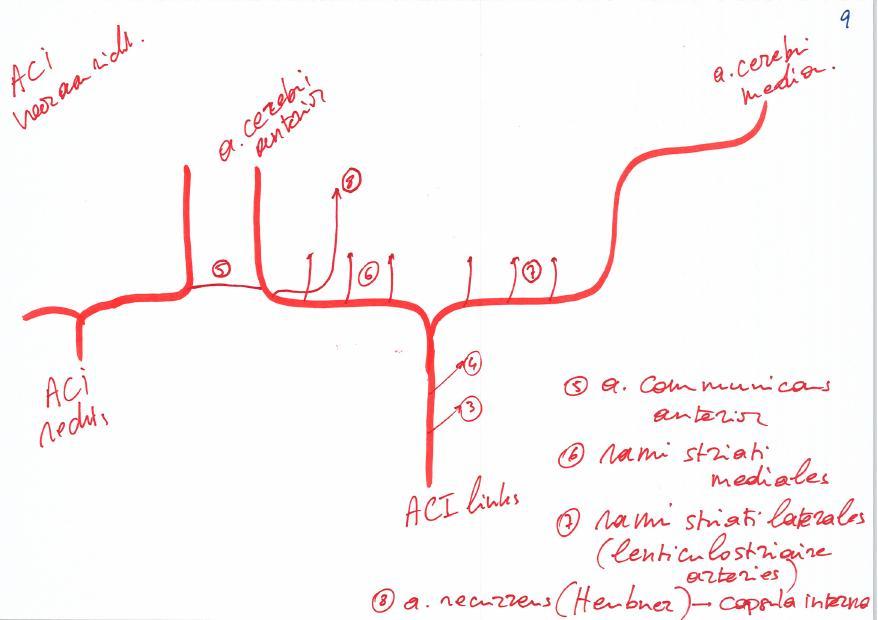 9
ACI
vooraanzicht.
a. cerebri
anterior
a. cerebri
media.
8
5
6
7
4
3
ACI
rechts
ACI links
5 a. communicans
anterior
6 rami striati
mediales
7 rami striati laterales
(lenticulostriaire
arteries)
8 a. recurrens (Heubner) → capsula interna